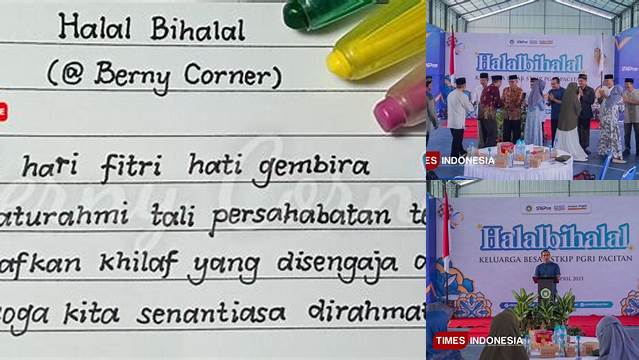 Halal Bihalal
(@ Berny Corner)
hari fitri hati gembira
aturahmi tali persahabatan
afkan khilaf yang disengaja
oga kita senantiasa dirahma
Halalbihalal
PGRI PACITAN
TIMES INDONESIA
Halalbihalal
KELUARGA BESAR STKIP PGRI PACITAN
TIMES INDONESIA